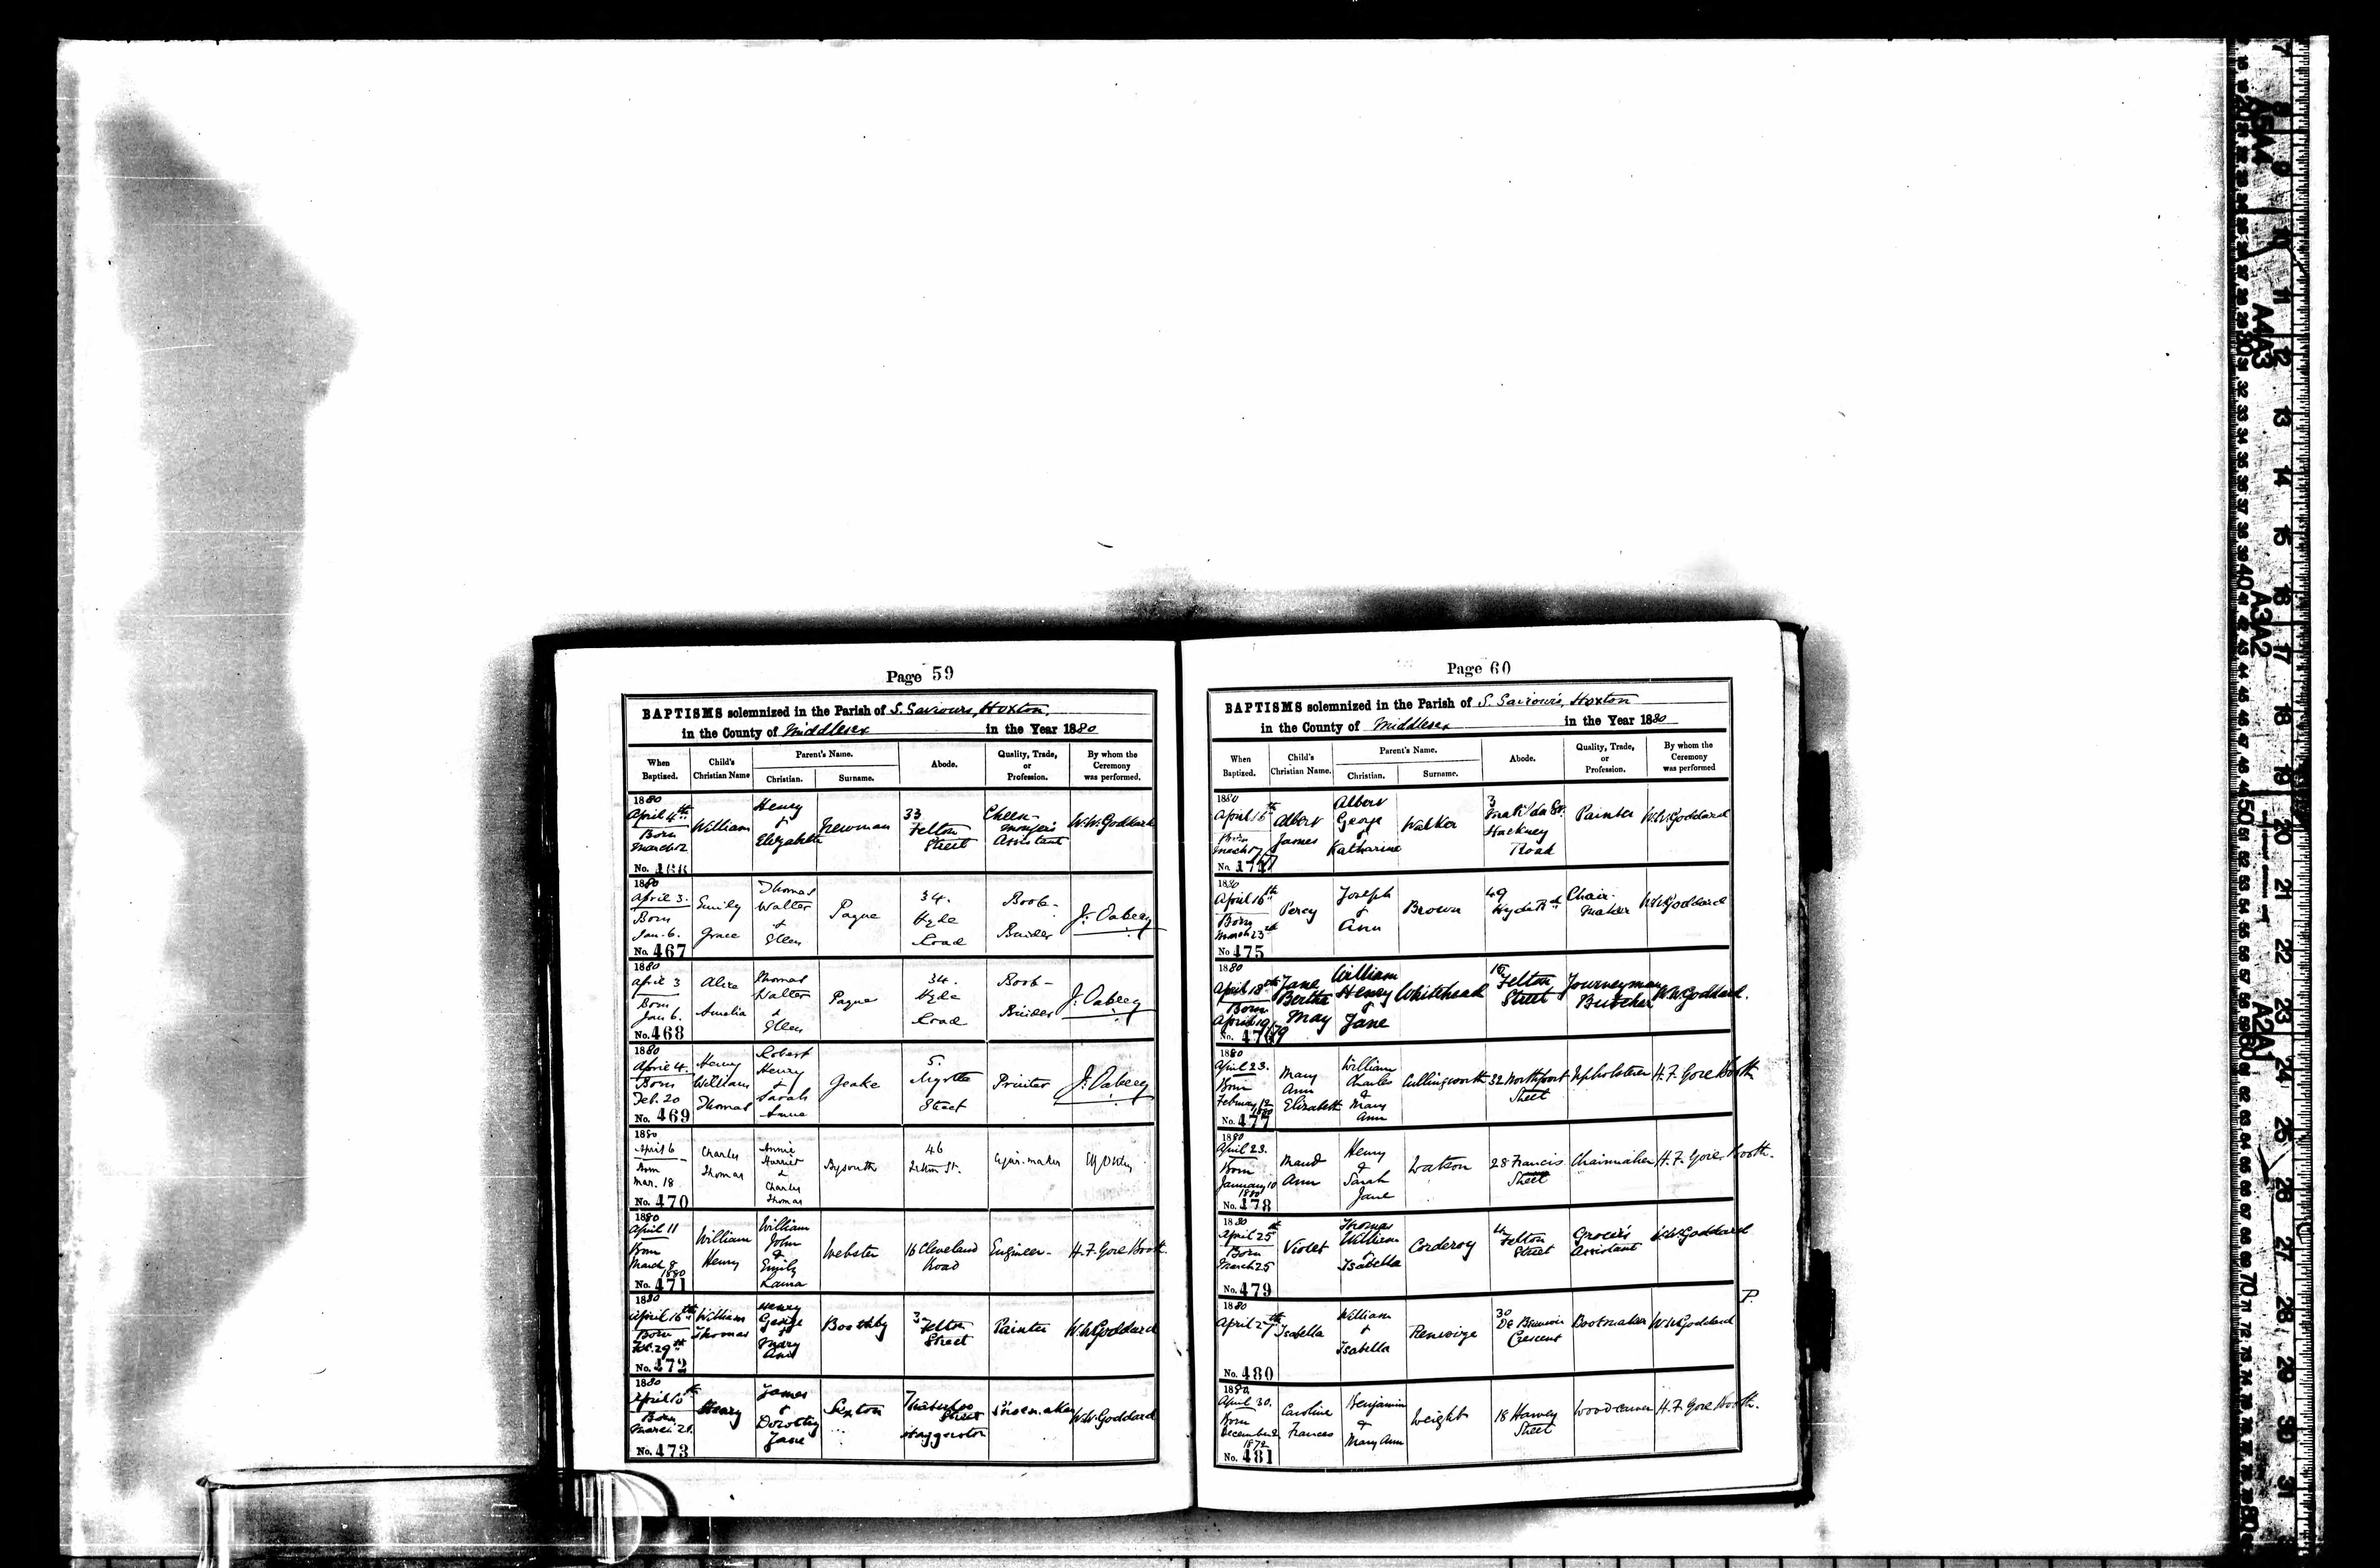 Page 59
BAPTISMS solemnized in the Parish of S. Saviours, Hoxton.
in the County of Middlesex in the Year 1880
When Baptized.
Child's Christian Name
Parent's Name.
Christian.
Surname.
Abode.
Quality, Trade, or Profession.
By whom the Ceremony was performed.
1880
April 4th
Born
March 12
No. 466
William
Henry
&
Elizabeth
Newman
33
Felton
Street
Cheese-
monger's
Assistant
W.W. Goddard
1880
April 3.
Born
Jan. 6.
No. 467
Emily
Grace
Thomas
Walter
&
Ellen
Payne
34.
Hyde
Road
Book-
Binder
1880
April 3
Born
Jan 6.
No. 468
Alice
Amelia
Thomas
Walter
&
Ellen
Payne
34.
Hyde
Road
Book-
Binder
1880
April 4.
Born
Feb. 20
No. 469
Henry
William
Thomas
Robert
Henry
&
Sarah
Anne
Geake
5.
Myrtle
Street
Printer
1880
April 6
Born
Mar. 18
No. 470
Charles
Thomas
Annie
Harriet
&
Charles
Thomas
Bysouth
46
Felton St.
Cigar-maker
1880
April 11
Born
March 8
1880
No. 471
William
Henry
William
John
&
Emily
Laura
Webster
16 Cleveland
Road
Engineer
H. F. Gore Booth
1880
April 16th
Born
Feb. 29th
No. 472
William
Thomas
Henry
George
&
Mary
Ann
Boothby
3
Felton
Street
Painter
W.W. Goddard
1880
Born
March 21
No. 473
Henry
James
&
Dorothy
Jane
Sexton
Street
Haggerston
Shoemaker
W.W. Goddard
Page 60
BAPTISMS solemnized in the Parish of S. Saviours, Hoxton
in the County of Middlesex in the Year 1880
When Baptized.
Child's Christian Name.
Parent's Name.
Christian.
Surname.
Abode.
Quality, Trade, or Profession.
By whom the Ceremony was performed
1880
April 16th
Born
No. 474
Albert
James
Albert
George
&
Katharine
Walker
3
Matilda St.
Hackney
Road
Painter
W.W. Goddard
1880
April 16th
Born
March 23rd
No 475
Percy
Joseph
&
Ann
Brown
49
Hyde Rd
Chair
Maker
W.W. Goddard
1880
April 18th
Born
April 19/79
No. 476
Jane
Bertha
May
William
Henry
&
Jane
Whitehead
Felton
Street
Journeyman
Butcher
W.W. Goddard.
1880
April 23.
Born
February 12
1880
No. 477
Mary
Ann
Elizabeth
William
Charles
&
Mary
Ann
Cullingworth
32 Northport
Street
Upholsterer
H. F. Gore Booth
1880
April 23.
Born
January 10
1880
No. 478
Maud
Ann
Henry
&
Sarah
Jane
Watson
28 Francis
Street
Chairmaker
H. F. Gore Booth.
1880
April 25th
Born
March 25
No. 479
Violet
Thomas
William
&
Isabella
Corderoy
4
Felton
Street
Grocer's
Assistant
W.W. Goddard
P.
1880
April 27th
No. 480
Isabella
William
&
Isabella
30
De Beauvoir
Crescent
Bootmaker
W.W. Goddard
1880
April 30.
Born
December 2
1872
No. 481
Caroline
Frances
Benjamin
&
Mary Ann
Weight
18 Harvey
Street
Woodcarver
H. F. Gore Booth.
A5A4
A4A3
A3A2
A2A1